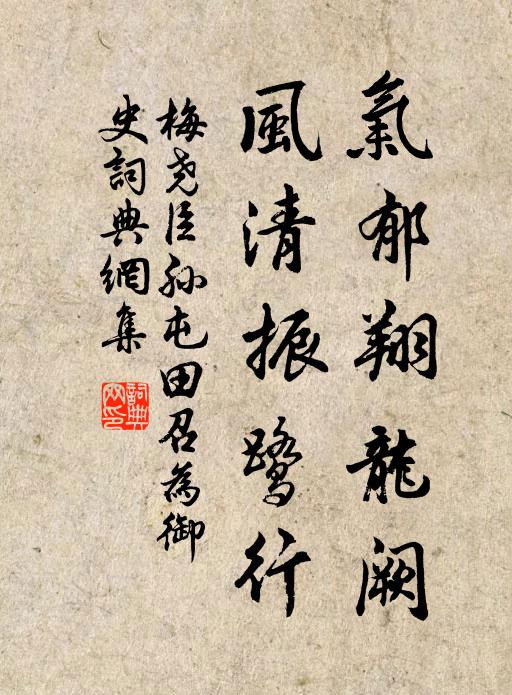 氣郁翔龍闕
風清振鷺行
梅堯臣孫屯田召為御
史詞典網集
詞典
网印